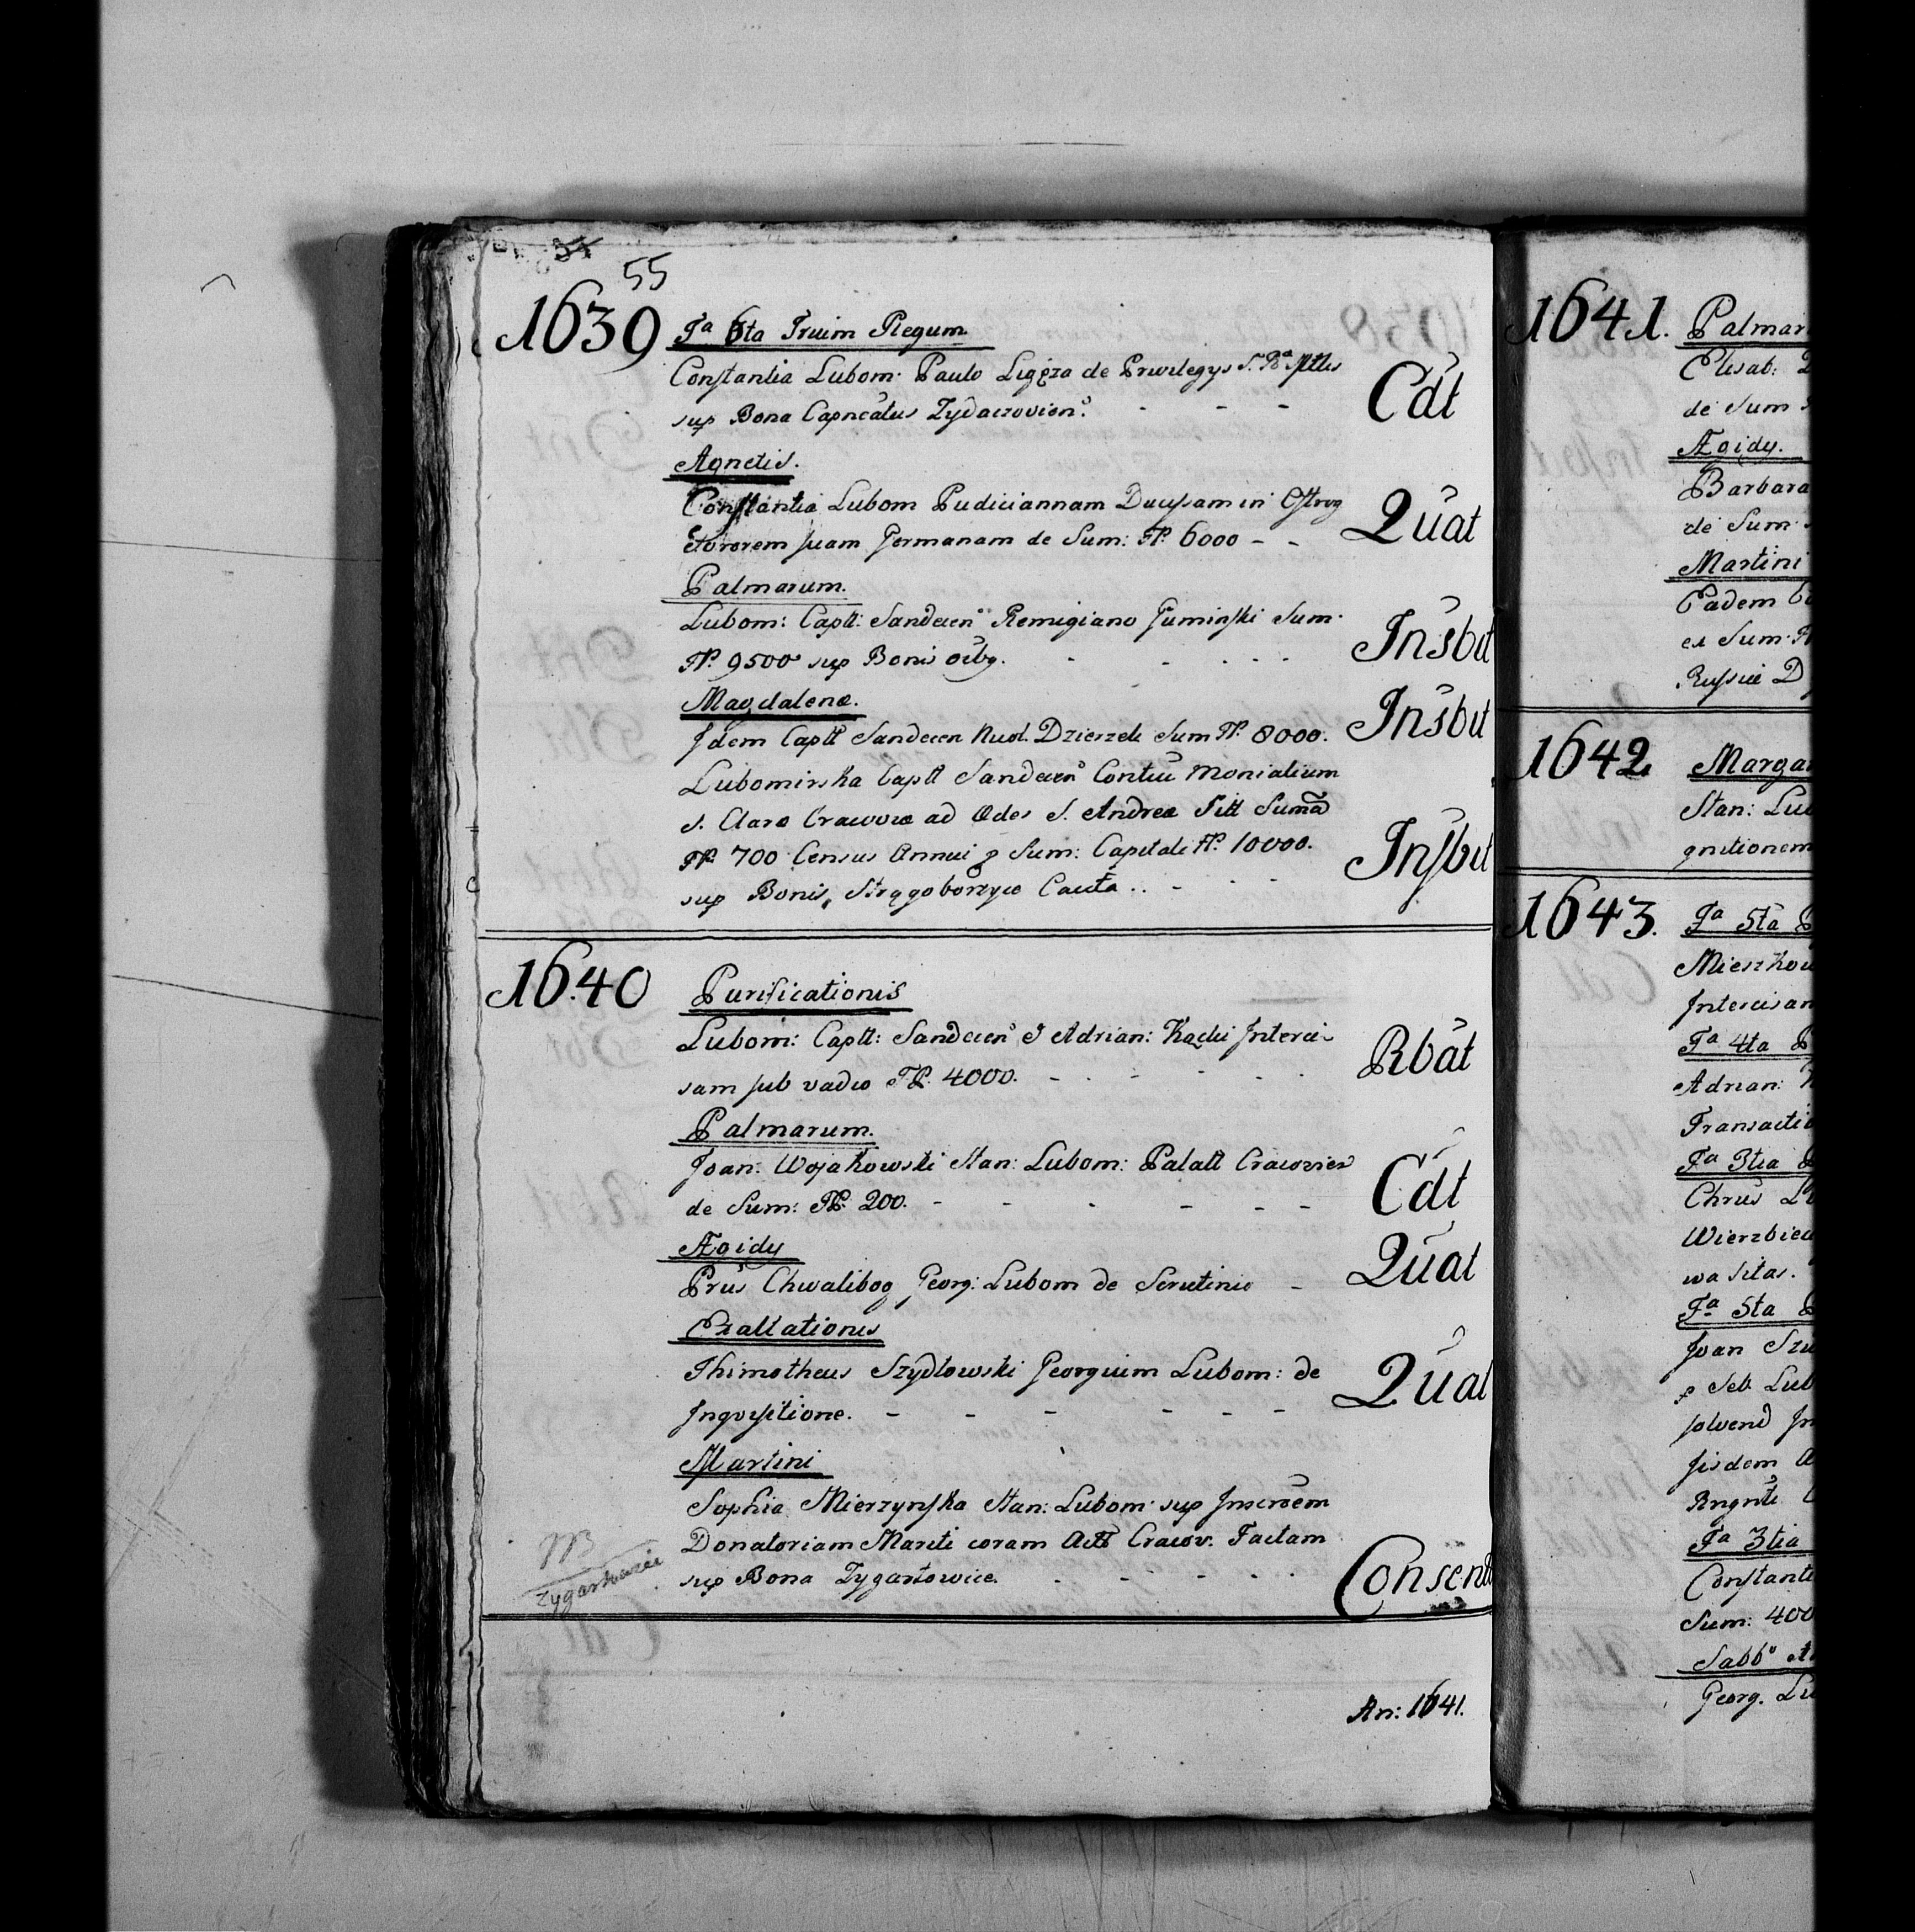 54
55
1639 Fa 6ta Trium Regum
Constantia Lubom. Paulo Ligęza de Privilegys S. Ra Mttis Cdt
sup Bona Capncatus Zydaczovien. - - -
Agnetis.
Constantia Lubom Pudiciannam Ducissam in Ostrog Quat
sororem suam Germanam de Sum: Fl. 6000 - -
Palmarum.
Lubom: Captt: Sandecen Remigiano Guminski Sum. Insbit
Fl. 9500 sup Bonis oibg. - - - - -
Magdalenæ.
Idem Captt Sandecen Dzierzek Sum Fl. 8000. Insbit
Lubomirska Captt Sandecen Contui Monialium
S. Claræ Cracoviæ ad Ædes S. Andreæ Titt Summa
Fl. 700 Census Annui p Sum: Capitali Fl. 10000. Insbit
sup Bonis Strągoborzyce Cauta. . - - -
1640 Purificationis
Lubom: Captt: Sandecen & Adrian: Kącki Interci- Rbat
sam sub vadio Fl. 4000. - - - - -
Palmarum.
Joan: Wojakowski Stan: Lubom: Palatt Cracovien Cdt
de Sum: Fl. 200. - - - - - -
Ægidy
Prus Chwalibog Georg: Lubom de Scrutinio - Quat
Exaltationis
Thimotheus Szydłowski Georgium Lubom: de Quat
Inqvisitione. - - - - - -
Martini
Sophia Mierzynska Stan: Lubom. sup Inscroem
Donatoriam Mariti coram Actis Cracov. Factam
sup Bona Zygartowice. - - - - - Consent
NB
Zygartowice
An: 1641.
1641. Palmar
Elisab:
de Sum
Ægidy.
Barbara
de Sum.
Martini
Eadem
ex Sum.
Russiæ D
1642 Marga
Stan: Lu
gnitionem
1643. Fa 5ta
Mieszkow
Intercisam
Fa 4ta
Adrian:
Transactio
Fa 3tia
Chrus
Wierzbic
wa sitas.
Fa 5ta
Joan Szu
p Seb. Lub
solvend In
Jisdem
Rngnti
Fa 3tia
Constanti
Sum: 400
Sabbo
Georg. Lu